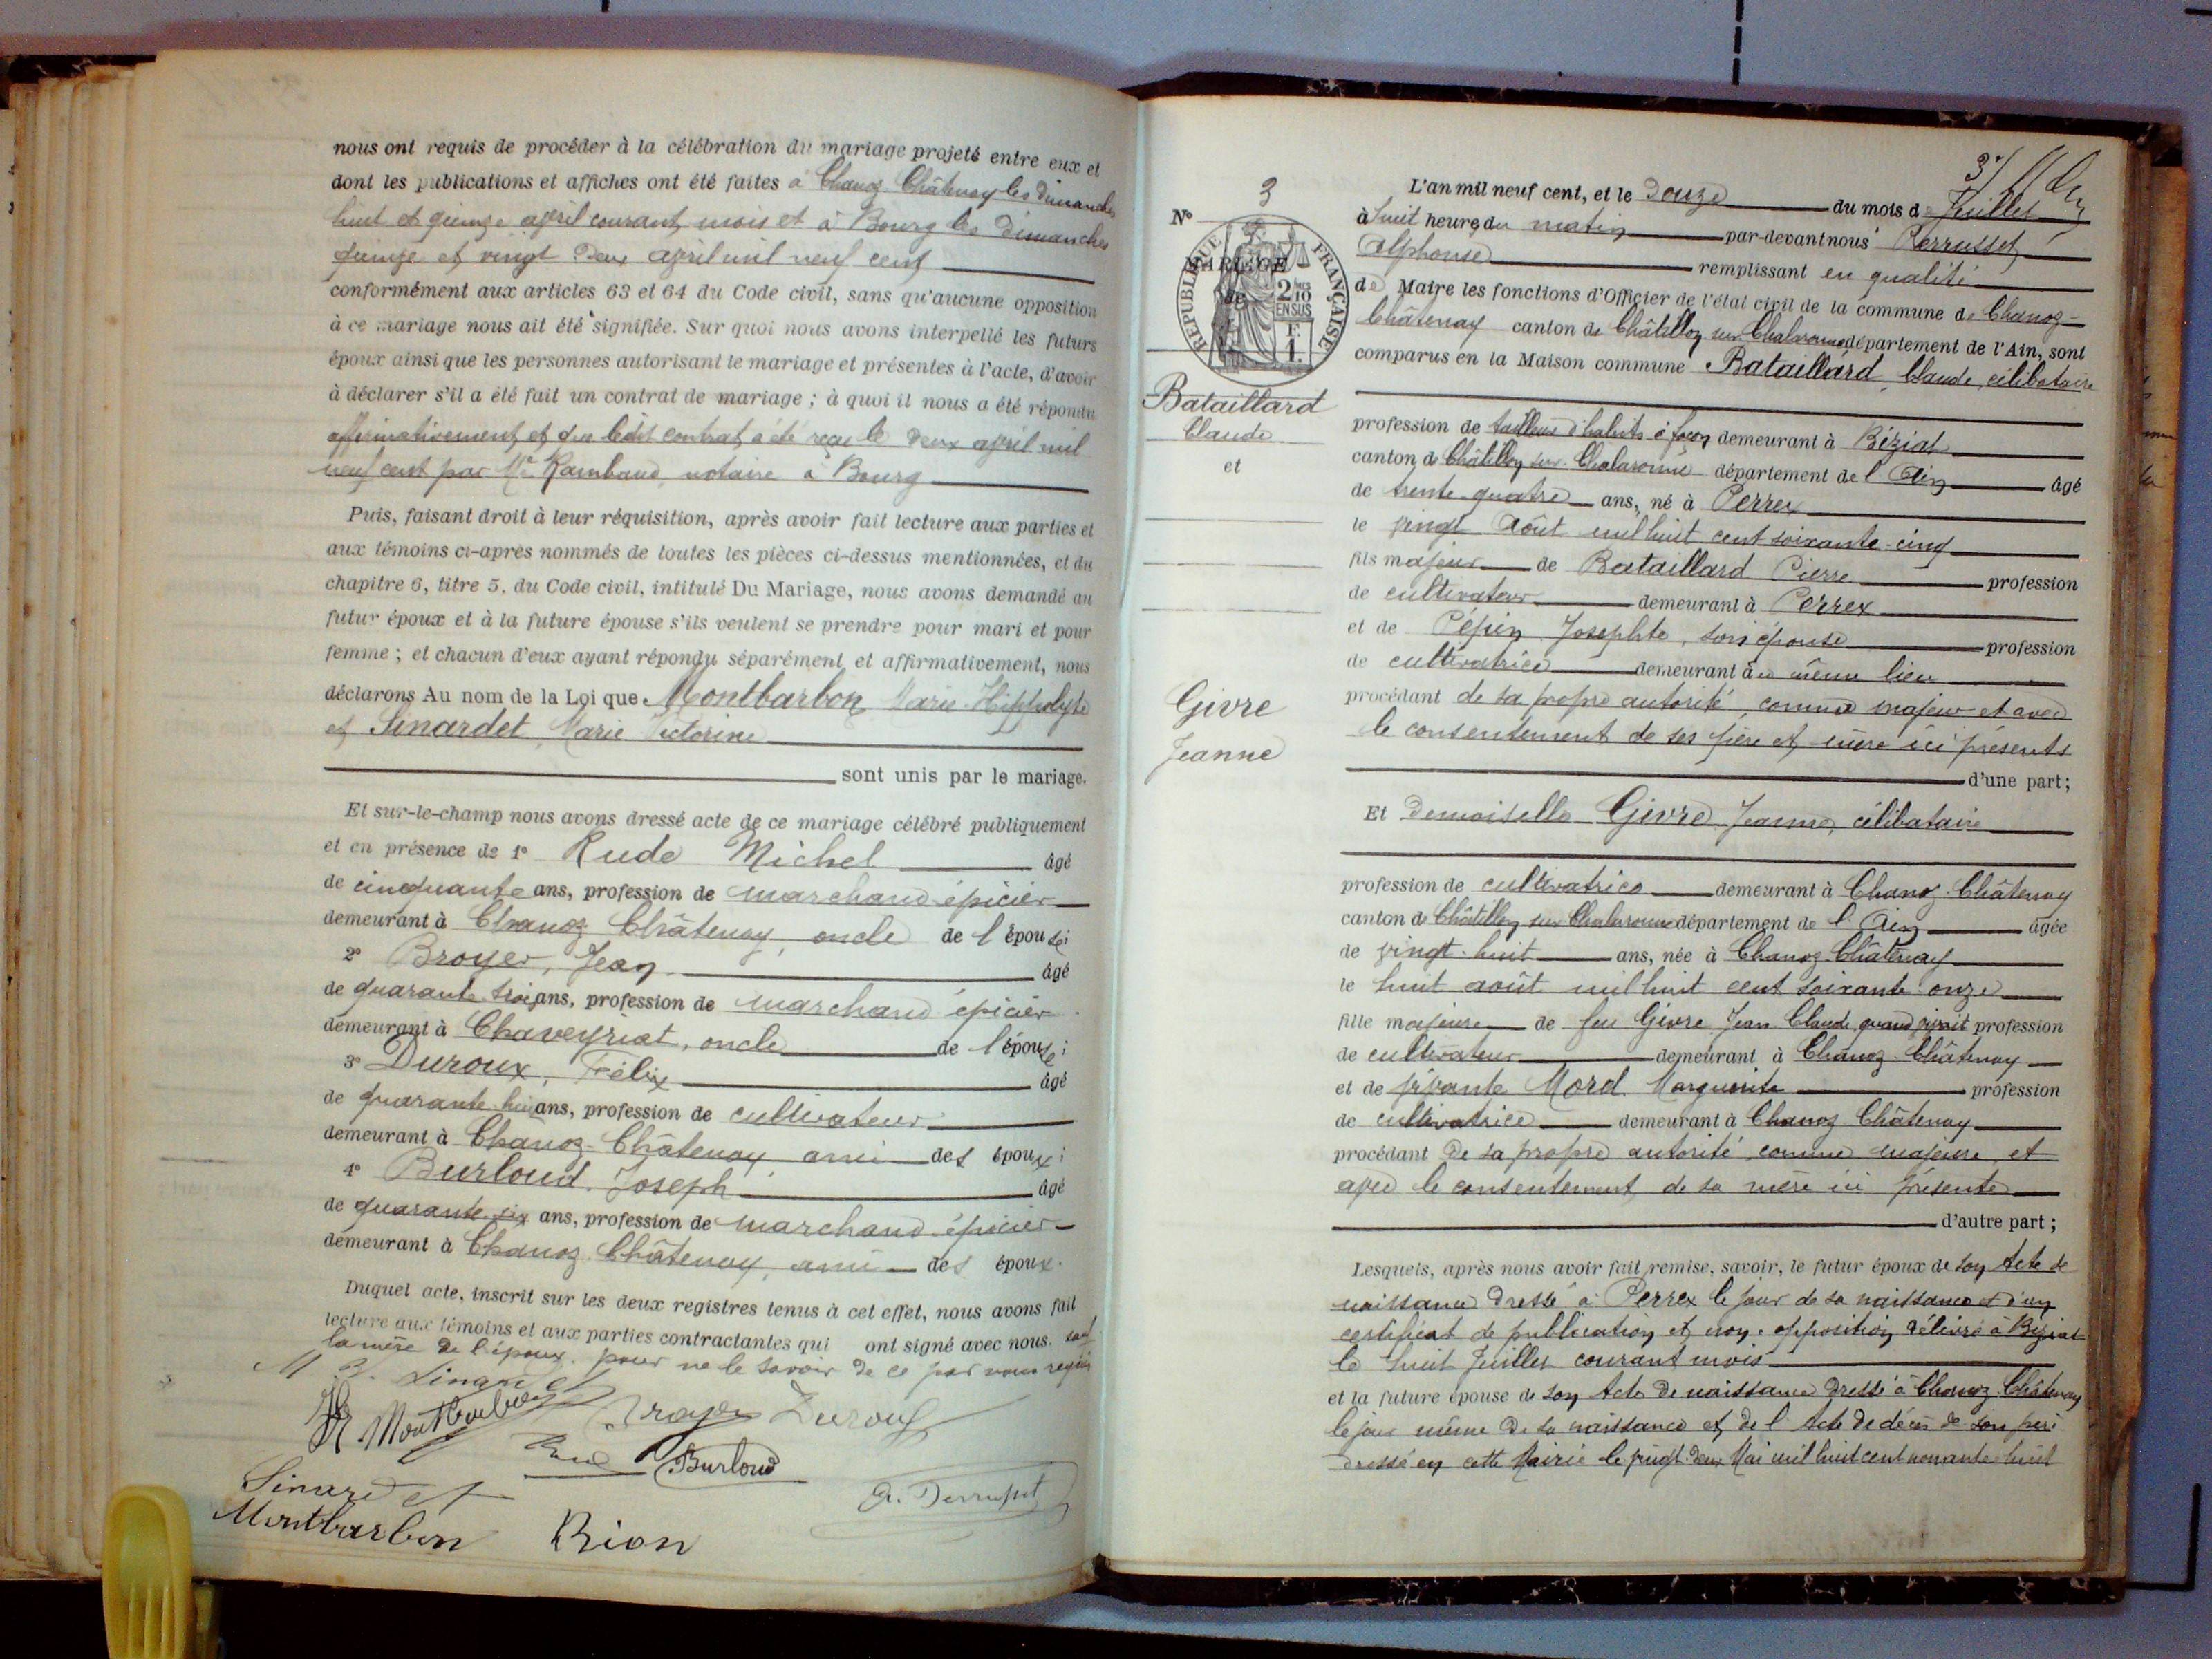 nous ont requis de procéder à la célébration du mariage projeté entre eux et
dont les publications et affiches ont été faites à Chanoz-Châtenay les dimanches
huit et quinze avril courant mois et à Bourg les dimanches
quinze et vingt deux avril mil neuf cent
conformément aux articles 63 et 64 du Code civil, sans qu'aucune opposition
à ce mariage nous ait été signifiée. Sur quoi nous avons interpellé les futurs
époux ainsi que les personnes autorisant le mariage et présentes à l'acte, d'avoir
à déclarer s'il a été fait un contrat de mariage ; à quoi il nous a été répondu
affirmativement et que ledit contrat a été reçu le deux avril mil
neuf cent par Me Rambaud, notaire à Bourg
Puis, faisant droit à leur réquisition, après avoir fait lecture aux parties et
aux témoins ci-après nommés de toutes les pièces ci-dessus mentionnées, et du
chapitre 6, titre 5, du Code civil, intitulé Du Mariage, nous avons demandé au
futur époux et à la future épouse s'ils veulent se prendre pour mari et pour
femme ; et chacun d'eux ayant répondu séparément et affirmativement, nous
déclarons Au nom de la Loi que Montbarbon Marie Hippolyte
et Sinardet Marie Victorine
sont unis par le mariage.
Et sur-le-champ nous avons dressé acte de ce mariage célébré publiquement
et en présence de 1° Rude Michel âgé
de cinquante ans, profession de marchand épicier
demeurant à Chanoz Châtenay, oncle de l'épouse;
2° Broyer, Jean âgé
de quarante trois ans, profession de marchand épicier
demeurant à Chaveyriat, oncle de l'épouse;
3° Duroux, Félix âgé
de quarante huit ans, profession de cultivateur
demeurant à Chanoz-Châtenay ami des époux;
4° Burloud Joseph âgé
de quarante six ans, profession de marchand épicier
demeurant à Chanoz Châtenay, ami des époux.
Duquel acte, inscrit sur les deux registres tenus à cet effet, nous avons fait
lecture aux témoins et aux parties contractantes qui ont signé avec nous. sauf
la mère de l'époux pour ne le savoir de ce par nous requis
M. Sinardet
H Montbarbon Broyer Duroux
Rude Burloud
Sinardet A. Perrusset
Montbarbon Rion
3
N° 3
L'an mil neuf cent, et le Douze du mois de Juillet
à huit heures du matin par-devant nous Perrusset
Alphonse remplissant en qualité
MARIAGE
de
RÉPUBLIQUE FRANÇAISE
2/10 EN SUS
F. 1.
de Maire les fonctions d'Officier de l'état civil de la commune de Chanoz-
Châtenay canton de Châtillon sur Chalaronne département de l'Ain, sont
comparus en la Maison commune Bataillard Claude, célibataire
Bataillard
Claude
et
Givre
Jeanne
profession de tailleur d'habits à façon demeurant à Béziat
canton de Châtillon sur Chalaronne département de l'Ain âgé
de trente-quatre ans, né à Perrex
le vingt Août mil huit cent soixante-cinq
fils majeur de Bataillard Pierre profession
de cultivateur demeurant à Perrex
et de Pépin Josephte, son épouse profession
de cultivatrice demeurant à même lieu
procédant de sa propre autorité comme majeur et avec
le consentement de ses père et mère ici présents
d'une part;
Et Demoiselle Givre Jeanne, célibataire
profession de cultivatrice demeurant à Chanoz-Châtenay
canton de Châtillon sur Chalaronne département de l'Ain âgée
de vingt-huit ans, née à Chanoz Châtenay
le huit août mil huit cent soixante onze
fille majeure de feu Givre Jean Claude quand vivait profession
de cultivateur demeurant à Chanoz-Châtenay
et de vivante Mord Marguerite profession
de cultivatrice demeurant à Chanoz Châtenay
procédant de sa propre autorité, comme majeure, et
avec le consentement de sa mère ici présente
d'autre part;
Lesquels, après nous avoir fait remise, savoir, le futur époux de son Acte de
naissance dressé à Perrex le jour de sa naissance et d'un
certificat de publication et non-opposition délivré à Béziat
le huit Juillet courant mois
et la future épouse de son Acte de naissance dressé à Chanoz-Châtenay
le jour même de sa naissance et de l'Acte de décès de son père
dressé en cette Mairie le vingt-deux Mai mil huit cent nonante huit